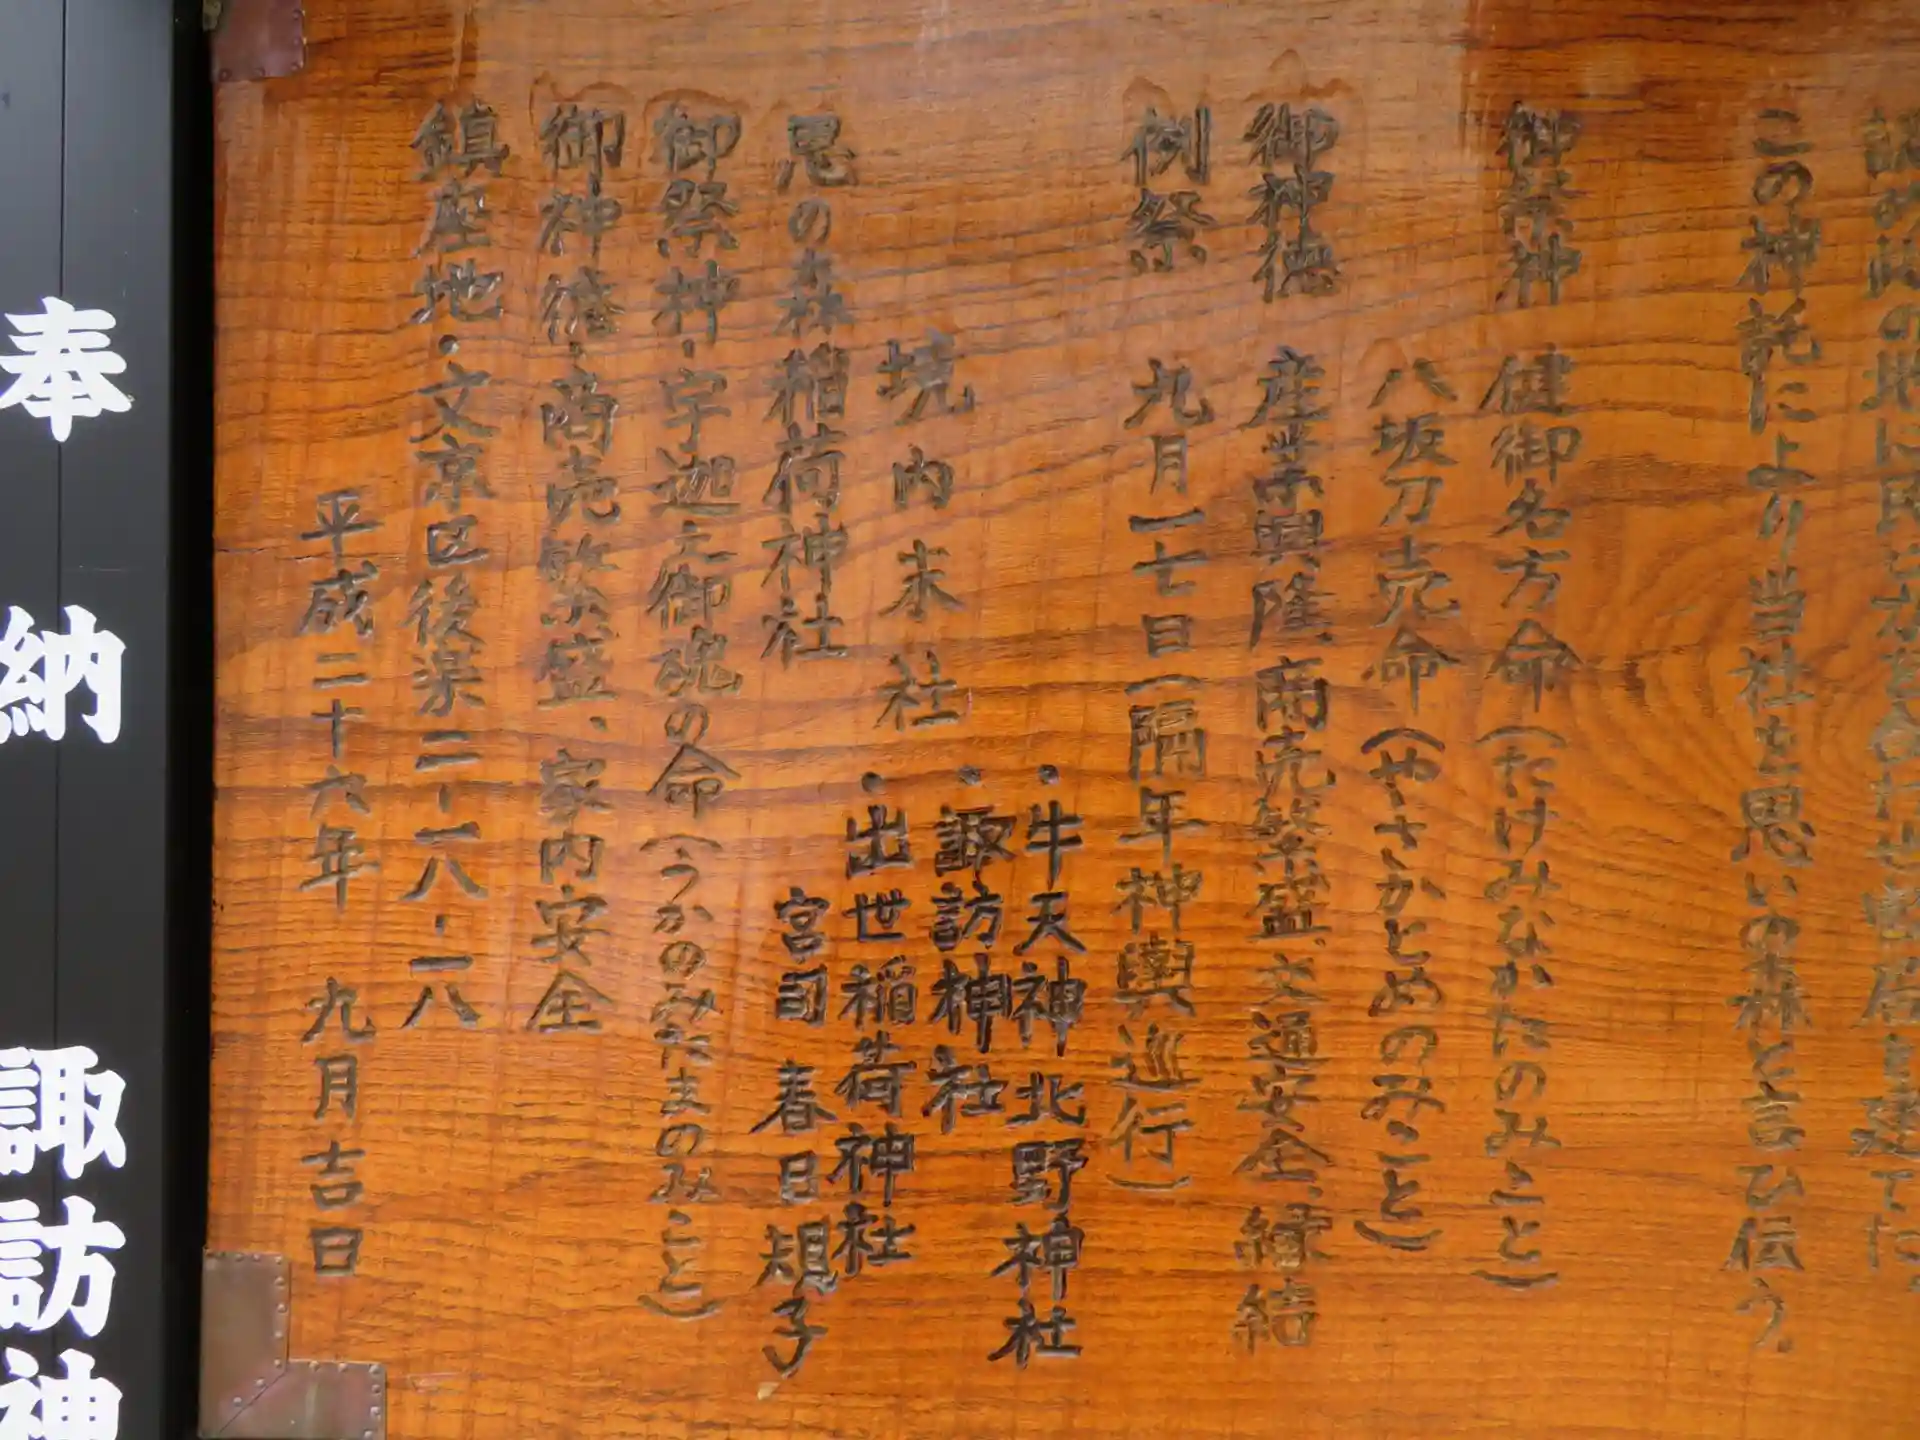 この神託により当社を思いの森と言ひ伝う。
御祭神 健御名方命(たけみなかたのみこと)
八坂刀売命(やさかとめのみこと)
御神徳 産業興隆、商売繁盛、交通安全、縁結
例祭 九月二七日(隔年神輿巡行)
境内末社
・牛天神北野神社
・諏訪神社
・出世稲荷神社
宮司 春日規子
思の森稲荷神社
御祭神・宇迦之御魂の命(うかのみたまのみこと)
御神徳・商売繁盛、家内安全
鎮座地・文京区後楽二-一八-一八
平成二十六年 九月吉日
奉納 諏訪神